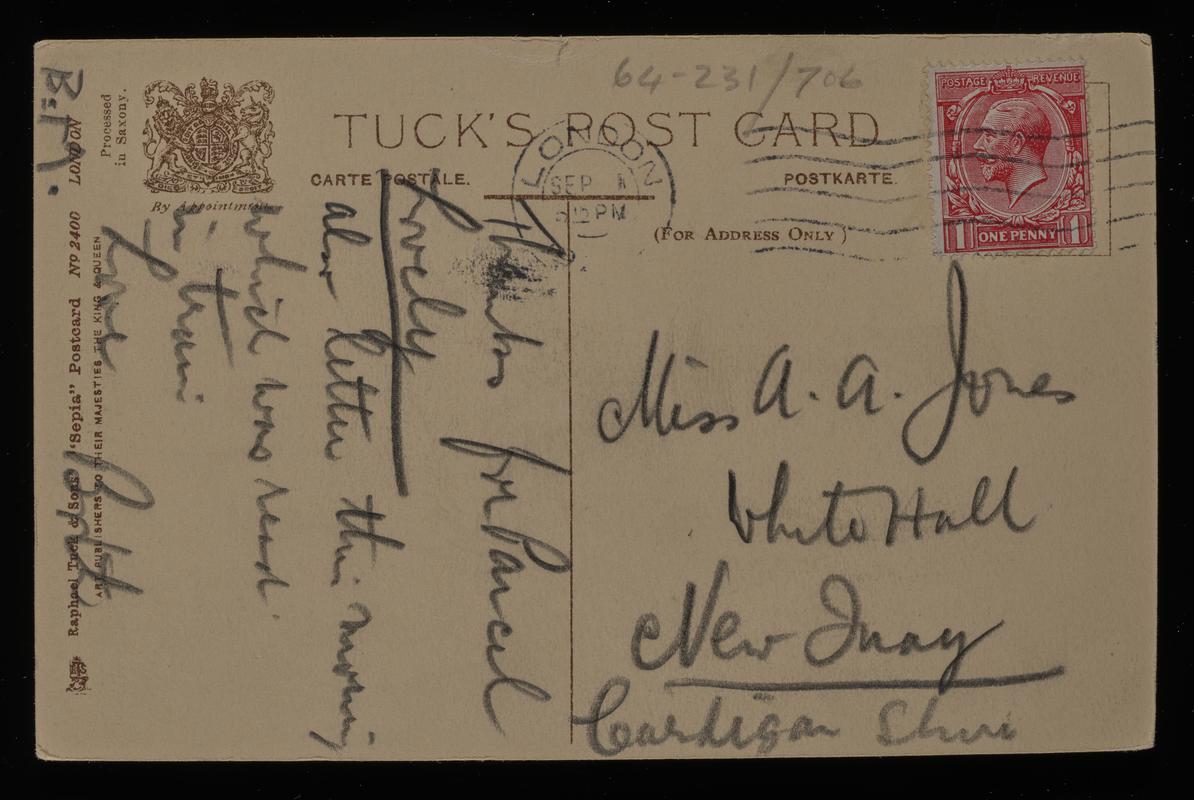 64-231/706
TUCK'S POST CARD
CARTE POSTALE.
POSTKARTE.
(FOR ADDRESS ONLY)
LONDON
SEP 1
PM
POSTAGE REVENUE
1 ONE PENNY 1
By Appointment
Processed
in Saxony.
Raphael Tuck & Sons' "Sepia" Postcard Nº 2400 LONDON
ART PUBLISHERS TO THEIR MAJESTIES THE KING & QUEEN
Thanks for Parcel
Lovely
also letter this morning
which was read
in train
Love
Miss A. A. Jones
White Hall
New Quay
Cardigan Shire